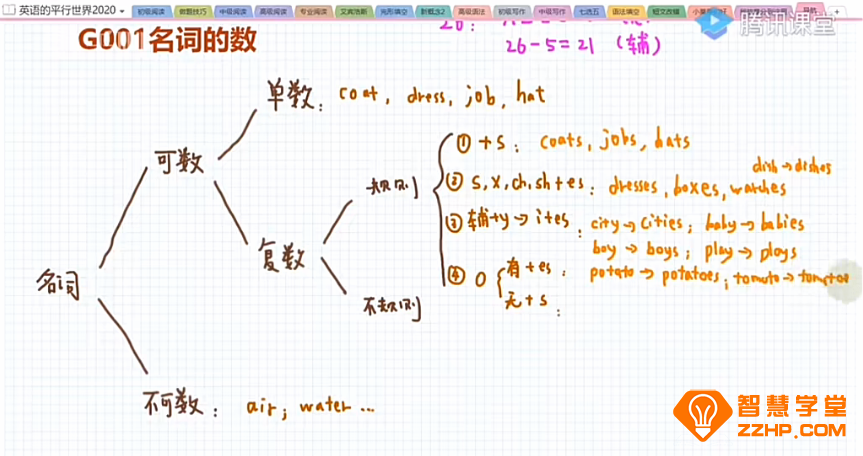 英语的平行世界2020
初级阅读 做题技巧 中级阅读 高级阅读 专业阅读 艾宾浩斯 完形填空 新概念2 高级语法 初级写作 中级写作 七选五 语法填空 短文改错
26:
26-5=21 (辅)
腾讯课堂
G001名词的数
单数: coat, dress, job, hat
可数
① +s: coats, jobs, hats
dish→dishes
规则
② s,x,ch,sh+es: dresses, boxes, watches
③ 辅+y→i+es: city→cities; baby→babies
boy→boys; play→plays
复数
④ o 有+es: potato→potatoes; tomato→tomatoes
无+s:
名词
不规则
不可数: air; water...
智慧学堂
ZZHP.COM